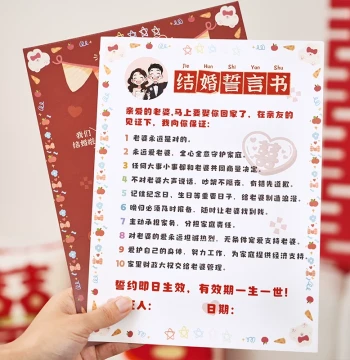 Jie Hun Shi Yan Shu
结婚誓言书
亲爱的老婆,马上要娶你回家了,在亲友的
见证下,我向你保证:
1 老婆永远是对的。
2 永远爱老婆,全心全意守护家庭。
3 任何大事小事都和老婆共同商量决定。
4 不对老婆大声说话,吵架不隔夜,有错先道歉。
5 记住纪念日,生日等重要日子,给老婆制造浪漫。
6 微信必须及时报备,随时让老婆找到我。
7 主动承担家务,分担家庭责任。
8 对老婆的爱永远坦诚热烈,无条件宠爱支持老婆。
9 爱护自己的身体,努力工作,为家庭提供经济支持。
10 家里财政大权交给老婆管理。
誓约即日生效,有效期一生一世!
人: 日期:
我们
结婚啦